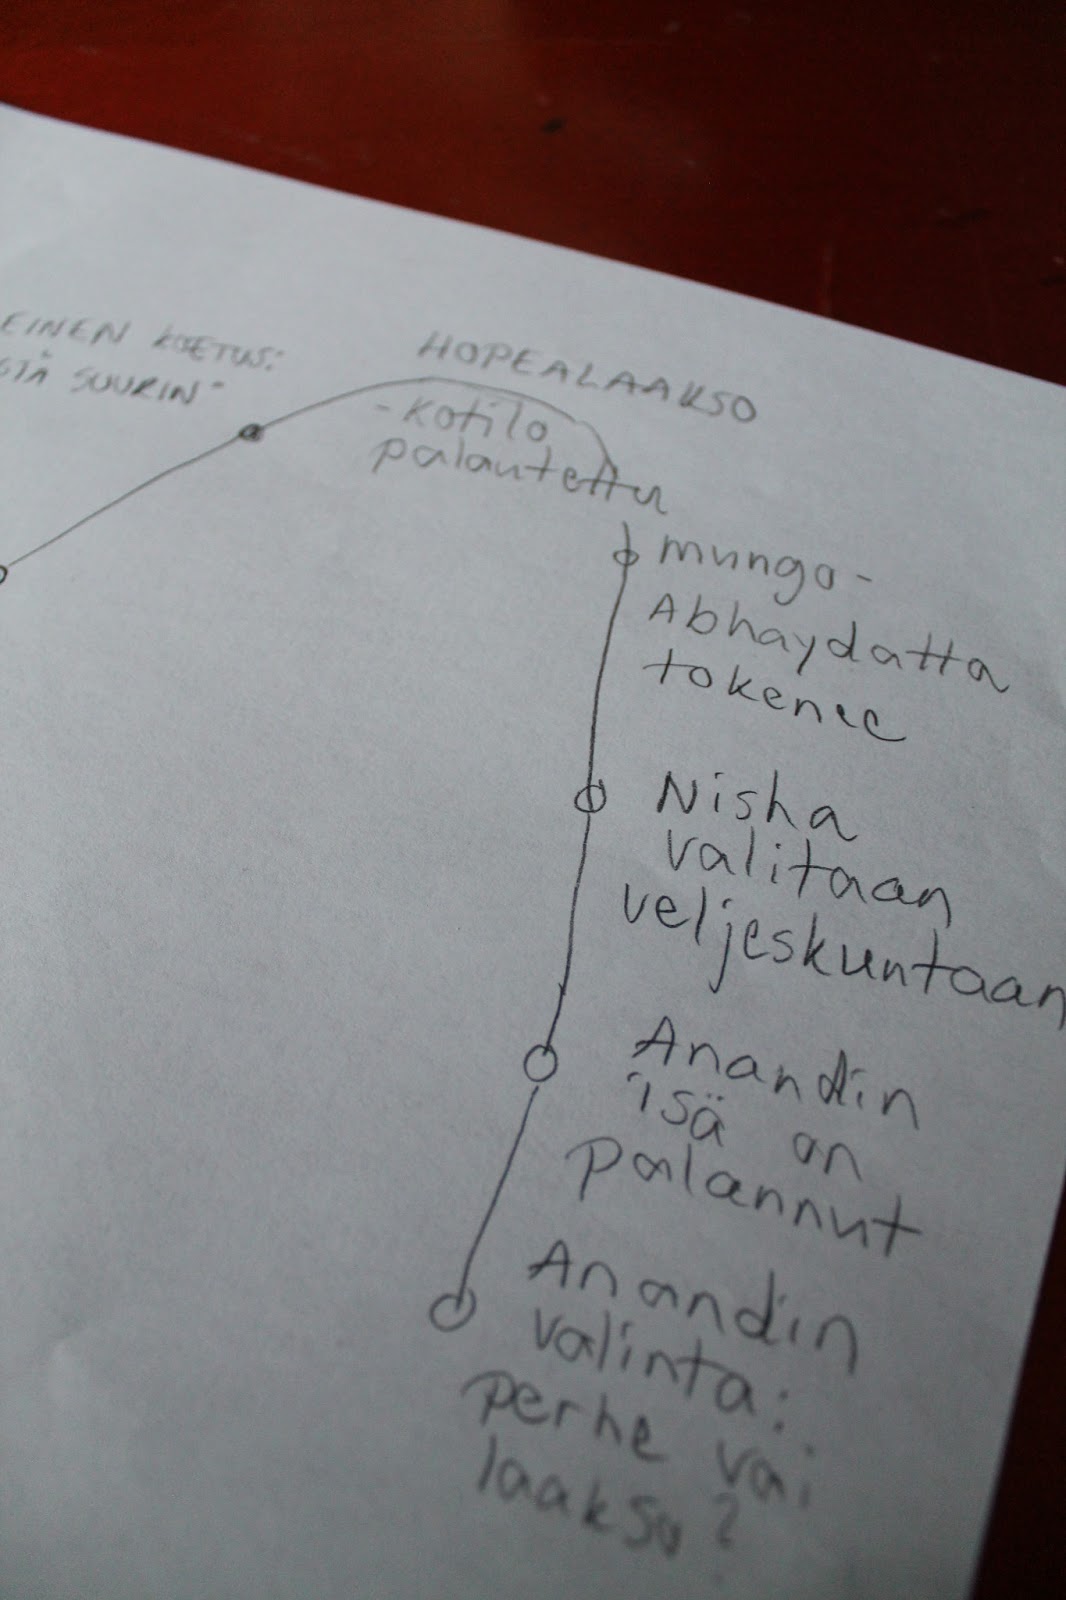 EINEN KOETUS:
STÄ SUURIN"
HOPEALAAKSO
- kotilo
palautettu
mungo -
Abhaydatta
tokenee
Nisha
valitaan
veljeskuntaan
Anandin
isä on
palannut
Anandin
valinta:
perhe vai
laakso?